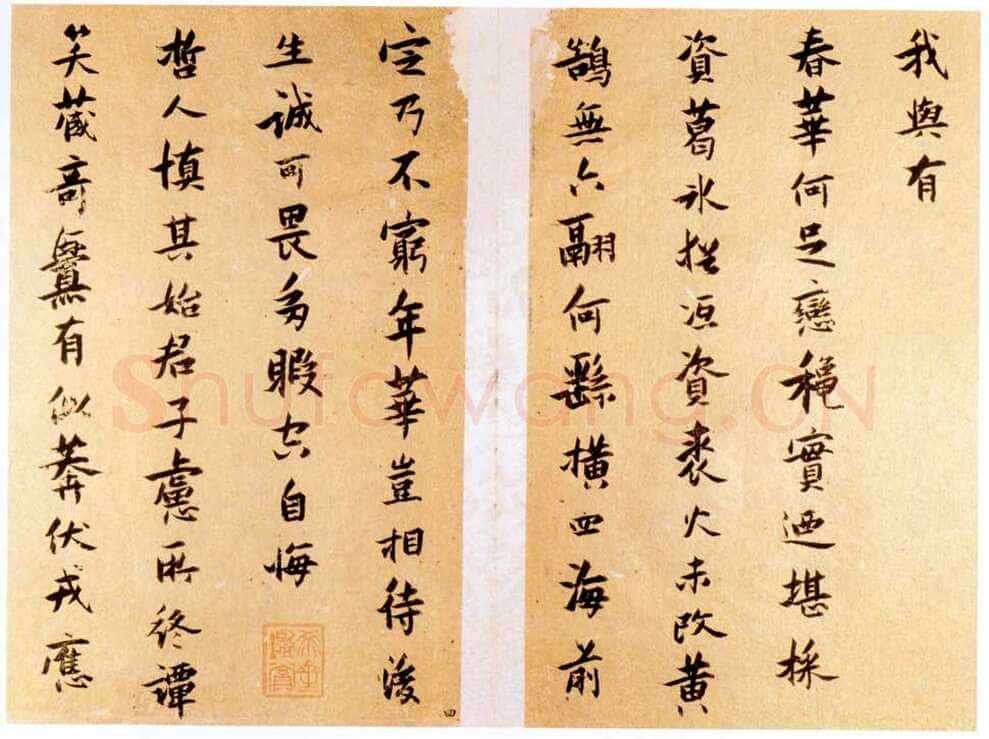 我與有
春華何足戀穠實迺堪採
資葛冰猶沍資裘火未改黃
鵠無六翮何繇橫四海前
定乃不窮年華豈相待後
生誠可畏多暇空自悔
哲人慎其始君子慮所終譚
笑藏奇有似莽伏戎應
四
Shufawang.CN